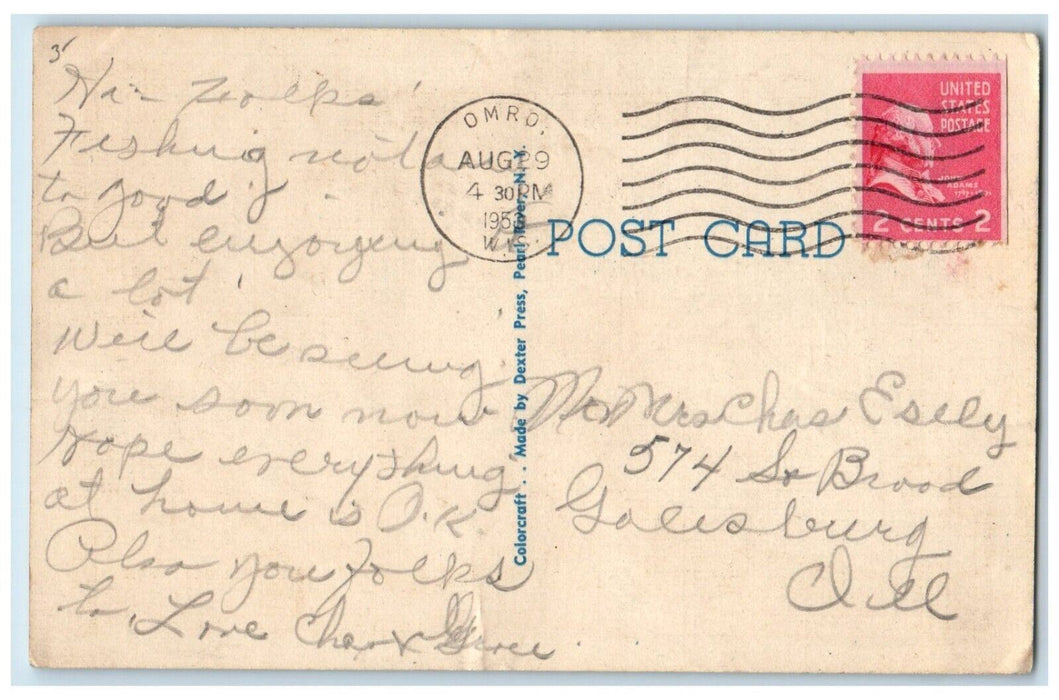 3
Hi - Folks'
Fishing not
to good.
But enjoying
a lot.
Will be seeing
you soon now
Hope everything
at home is O.K.
Also you Folks
to, Love Chas & Grace
OMRO,
AUG 29
4 30 PM
195
WIS
UNITED
STATES
POSTAGE
JOHN
ADAMS
2 CENTS 2
POST CARD
Colorcraft . . Made by Dexter Press, Pearl River, N. Y.
Mr Mrs Chas Esely
574 So Broad
Galesburg
Ill